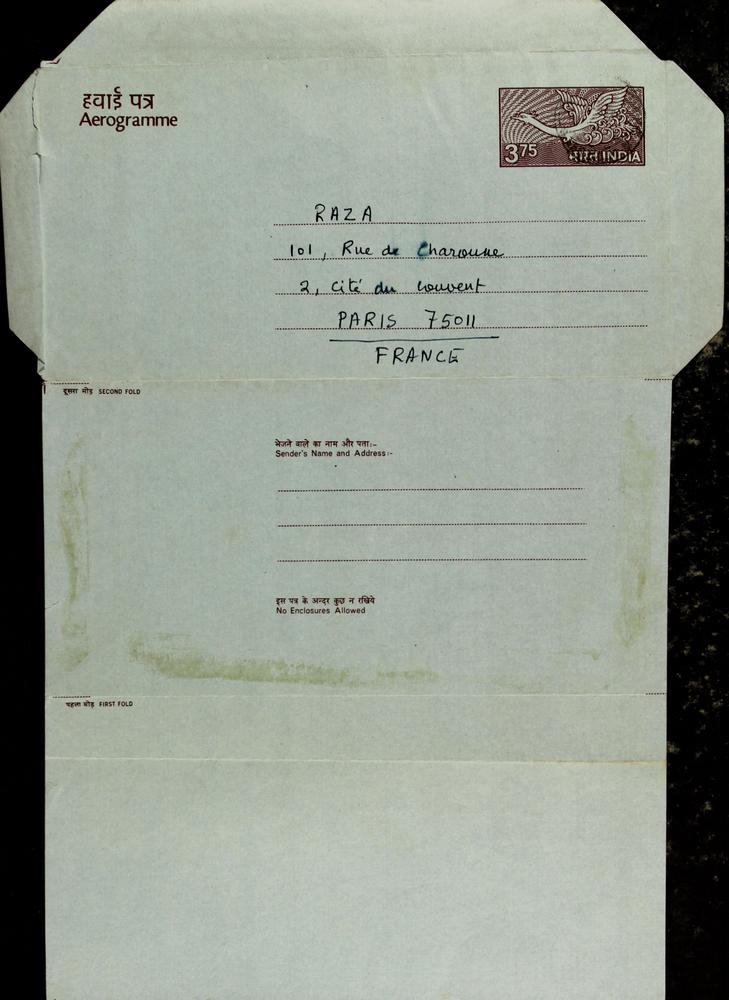 हवाई पत्र
Aerogramme
3 75
भारत INDIA
RAZA
101, Rue de Charonne
2, Cité du couvent
PARIS 75011
FRANCE
दूसरा मोड़ SECOND FOLD
भेजने वाले का नाम और पता:-
Sender's Name and Address:-
इस पत्र के अन्दर कुछ न रखिये
No Enclosures Allowed
पहला मोड़ FIRST FOLD